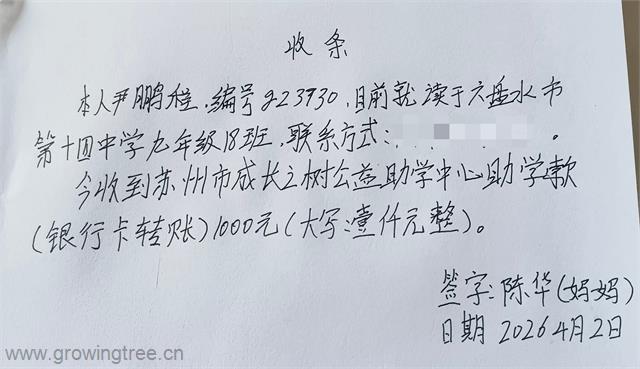 收条
本人尹鹏程，编号g23930，目前就读于六盘水市
第十四中学九年级18班，联系方式：
今收到苏州市成长之树公益助学中心助学款
（银行卡转账）1000元（大写：壹仟元整）。
签字：陈华（妈妈）
日期 2026年4月2日
www.growingtree.cn